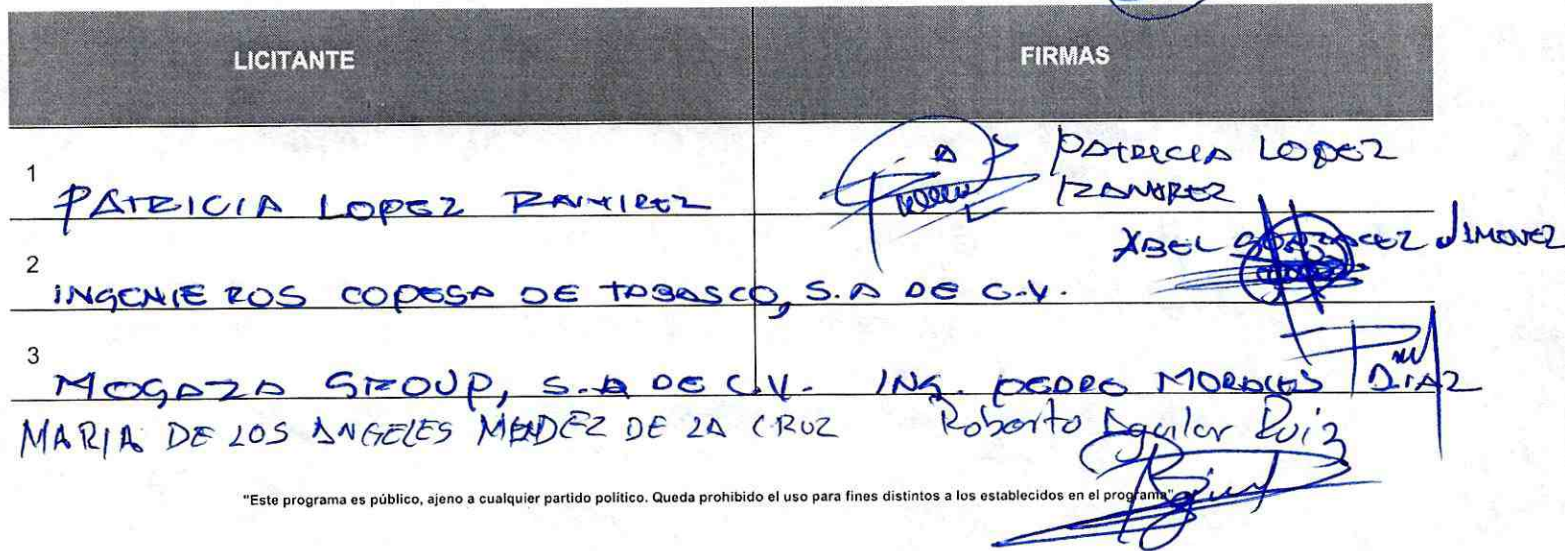 LICITANTE FIRMAS
1 PATRICIA LOPEZ RAMIREZ PATRICIA LOPEZ
RAMIREZ
2 INGENIEROS COPESA DE TABASCO, S.A DE C.V. ABEL GONZALEZ JIMENEZ
3 MOGAZA GROUP, S.A DE C.V. ING. PEDRO MORALES DIAZ
MARIA DE LOS ANGELES MENDEZ DE LA CRUZ Roberto Aguilar Ruiz
"Este programa es público, ajeno a cualquier partido político. Queda prohibido el uso para fines distintos a los establecidos en el programa"